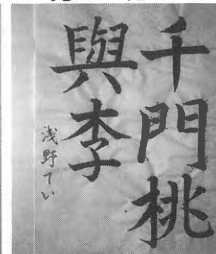 千門桃
與李
浅野てい